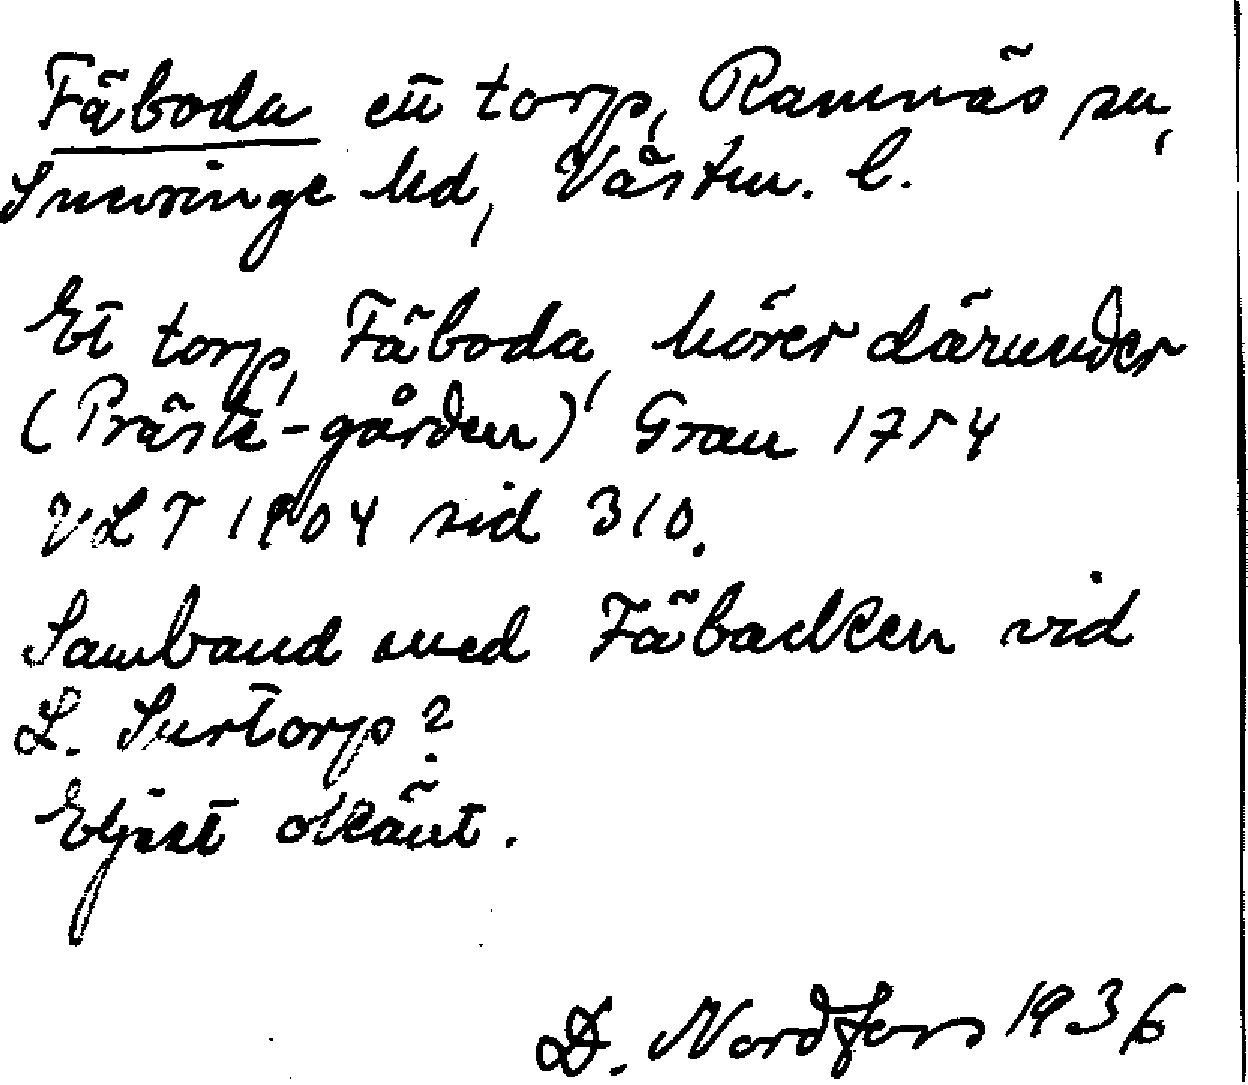 Fäboda ett torp, Ramnäs sn,
Snevringe hd, Västm. l.
Ett torp, Fäboda, hörer därunder
(Präste-gården) Grau 1754
VLT 1904 sid 310.
Samband med Fäbacken vid
L. Surtorp?
Eljest okänt.
D. Nordfors 1936